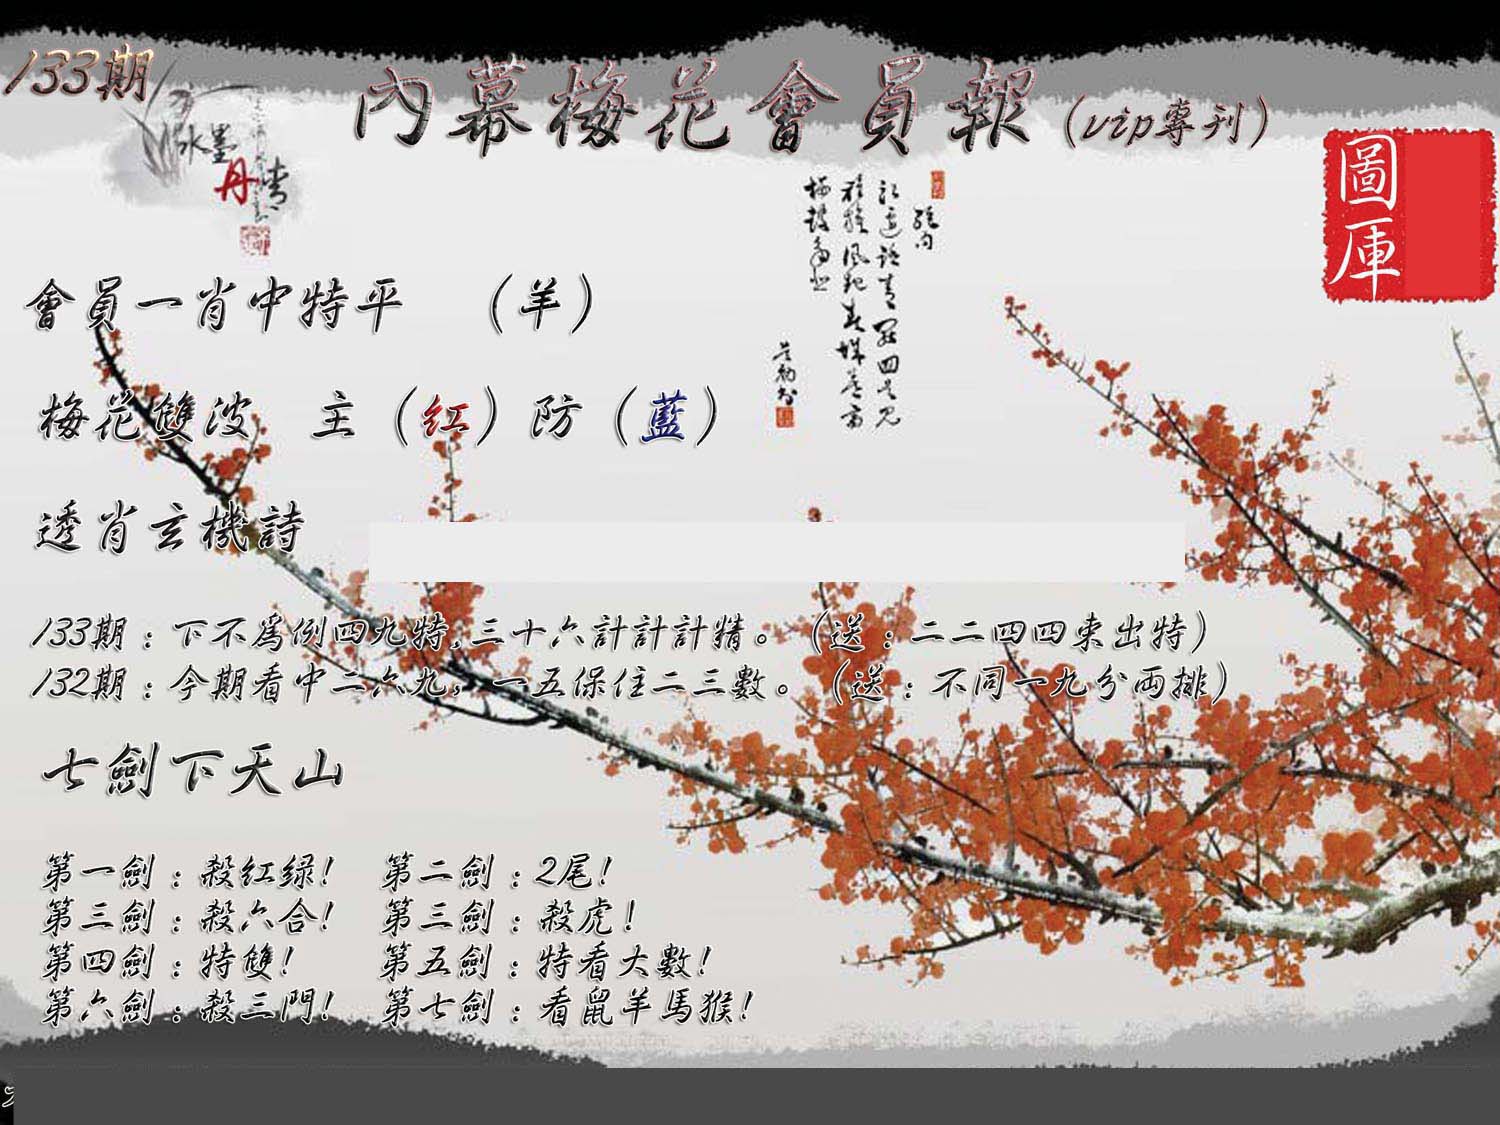 133期
內幕梅花會員報(vip專刊)
水墨
丹情
圖庫
會員一肖中特平 (羊)
梅花雙波 主(紅)防(藍)
透肖玄機詩
133期:下不為例四九特,三十六計計計精。(送:二二四四東出特)
132期:今期看中二六九,一五保住二三數。(送:不同一九分兩排)
七劍下天山
第一劍:殺紅绿! 第二劍:2尾!
第三劍:殺六合! 第三劍:殺虎!
第四劍:特雙! 第五劍:特看大數!
第六劍:殺三門! 第七劍:看鼠羊馬猴!